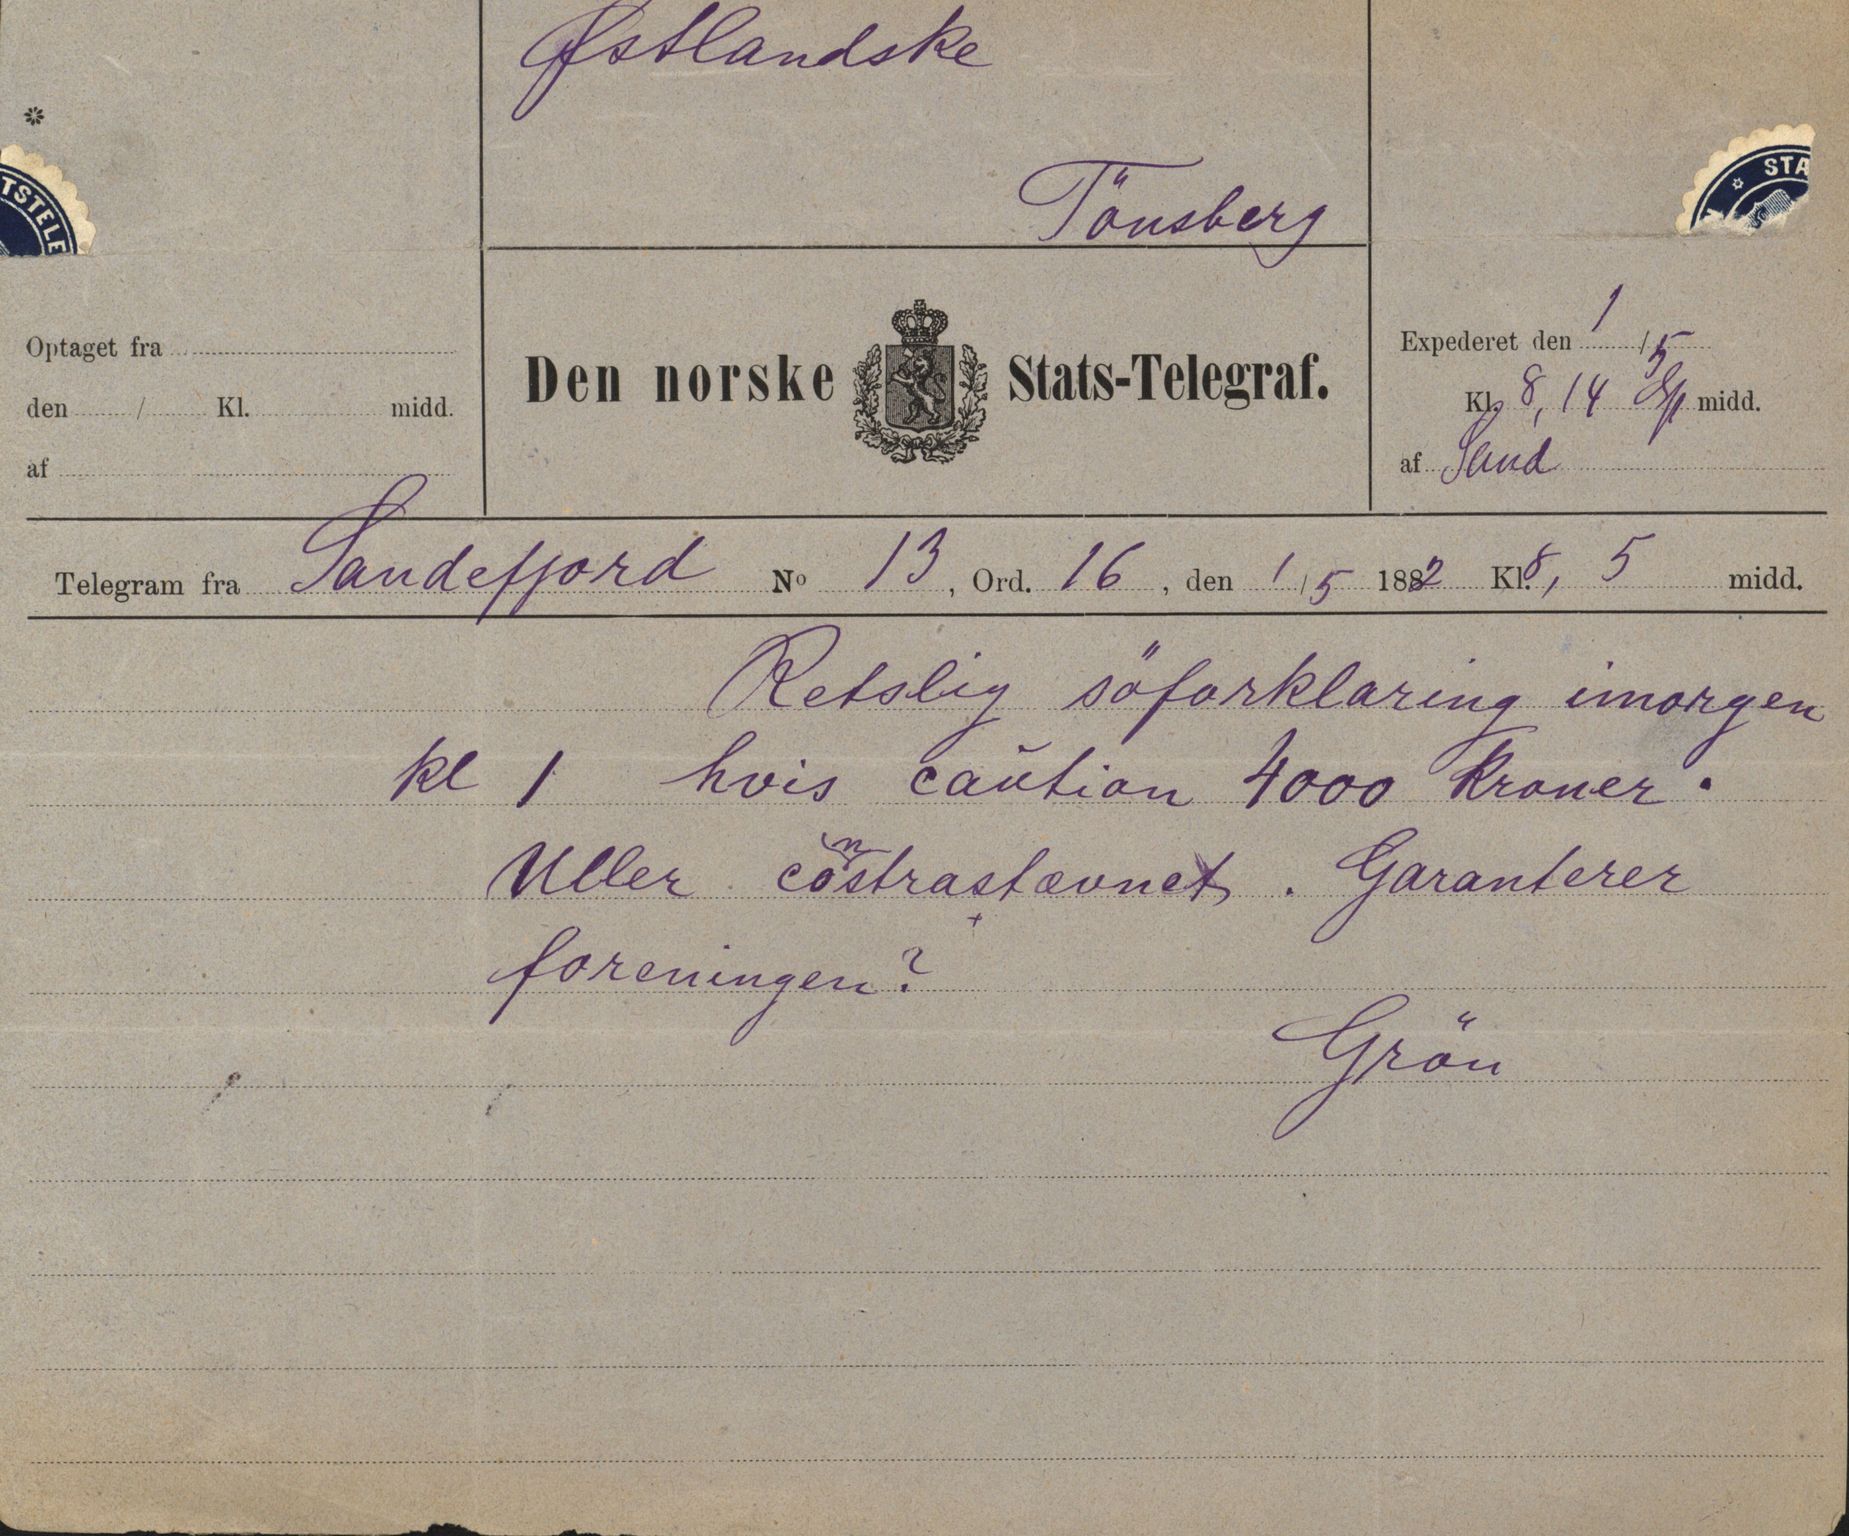 Østlandske
Tönsberg
*
TSTELE
STA
Optaget fra
den / Kl. midd.
af
Den norske Stats-Telegraf.
Expederet den 1/5
Kl. 8,14 midd.
af Sand
Telegram fra Sandefjord No 13, Ord. 16, den 1/5 1882 Kl. 8,5 midd.
Retslig söforklaring imorgen
kl 1 hvis caŭtion 4000 kroner.
Uller constrastævnet. Garanterer
foreningen?
Grön